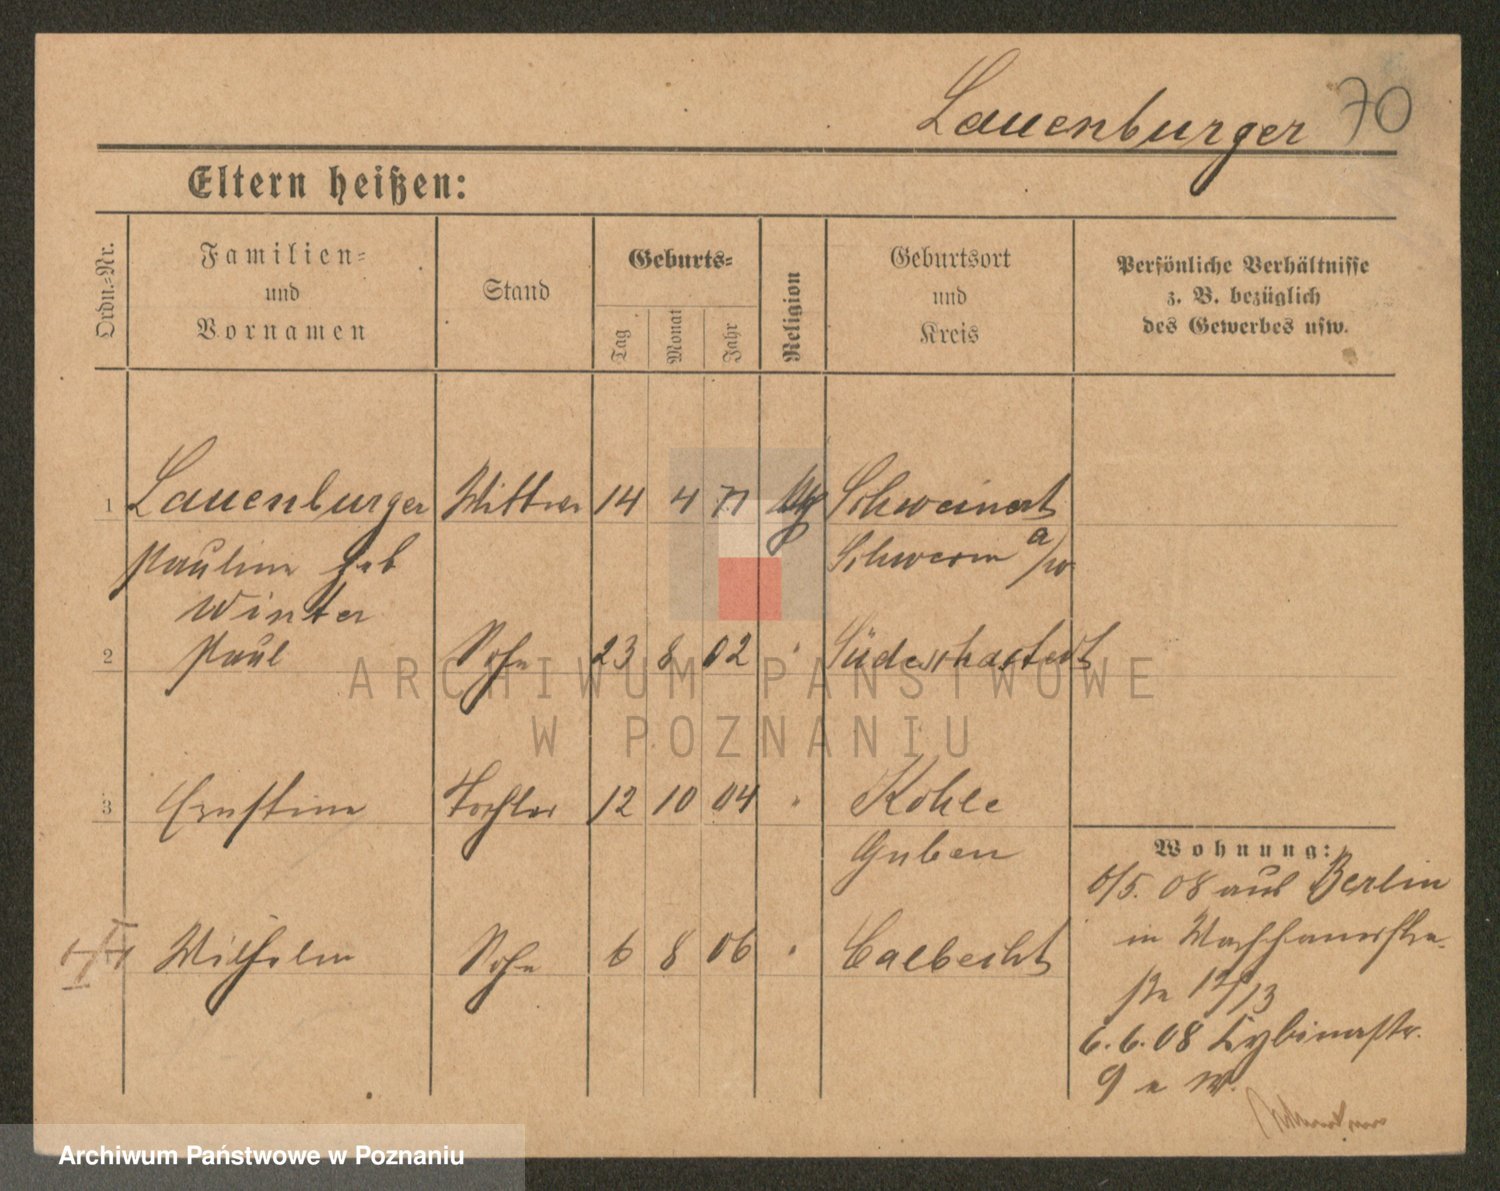 Lauenburger 70
Eltern heißen:
Ordn.-Nr.
Familien-
und
Vornamen
Stand
Geburts-
Tag
Monat
Jahr
Religion
Geburtsort
und
Kreis
Persönliche Verhältnisse
z. B. bezüglich
des Gewerbes usw.
1 Lauenburger Wittwe 14 4 71 Schweinert
Pauline geb Schwerin a/w
Winter
2 Paul Sohn 23 8 02 " Süderhastedt
ARCHIWUM PAŃSTWOWE
W POZNANIU
3 Ernstine Tochter 12 10 04 " Kohlo
Guben
Wilhelm Sohn 6 8 06 " Calbecht
Wohnung:
6/5. 08 aus Berlin
in
12/13
6.6.08 Cybinastr.
9
Archiwum Państwowe w Poznaniu